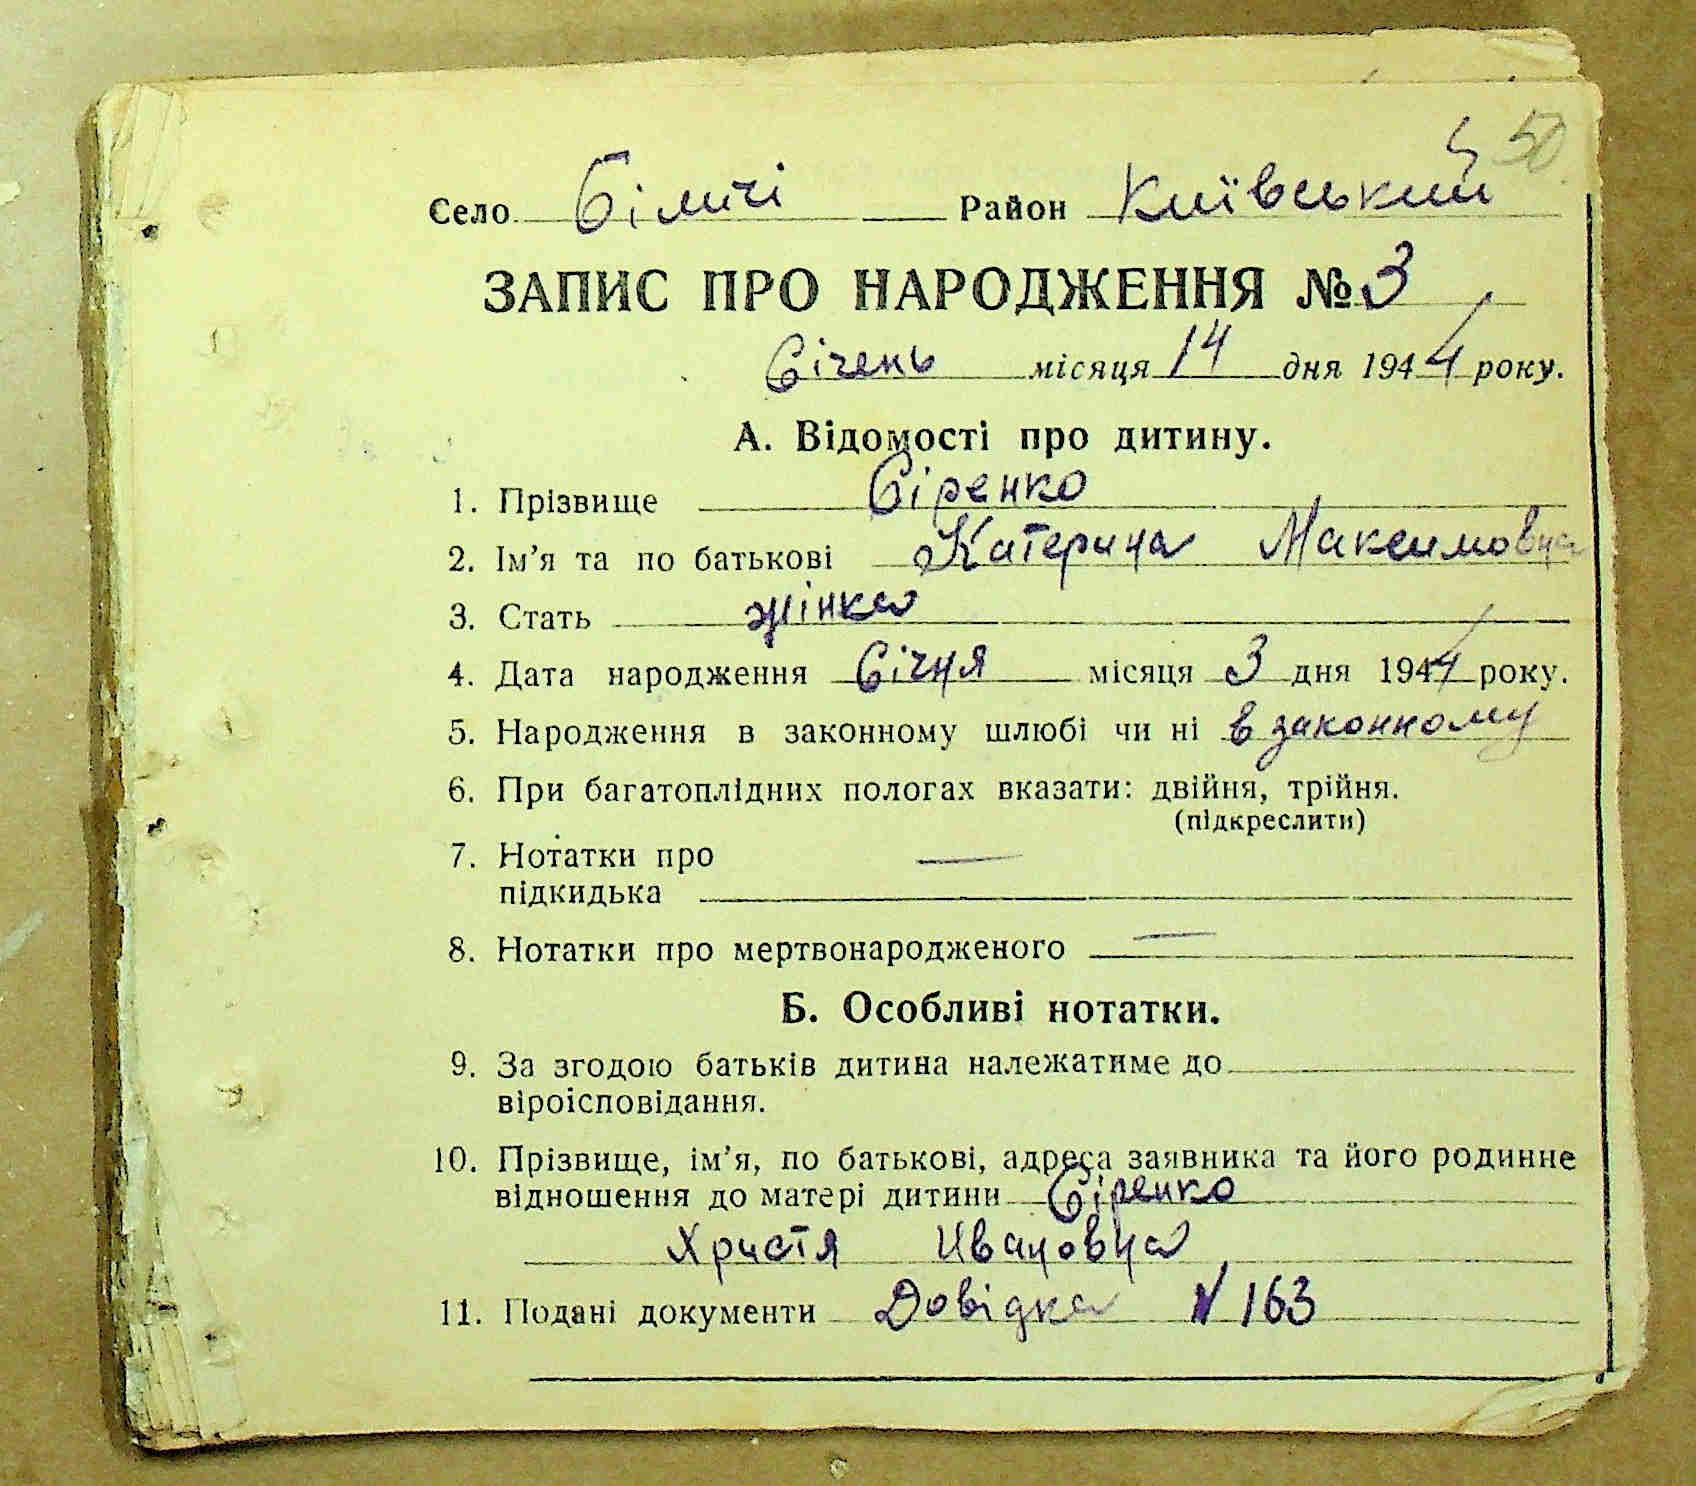 50
Село Біличі Район Київський
ЗАПИС ПРО НАРОДЖЕННЯ № 3
Січень місяця 14 дня 1944 року.
А. Відомості про дитину.
1. Прізвище Сіренко
2. Ім'я та по батькові Катерина Максимовна
3. Стать жінка
4. Дата народження Січня місяця 3 дня 1944 року.
5. Народження в законному шлюбі чи ні в законному
6. При багатоплідних пологах вказати: двійня, трійня.
(підкреслити)
7. Нотатки про —
підкидька
8. Нотатки про мертвонародженого —
Б. Особливі нотатки.
9. За згодою батьків дитина належатиме до
віроісповідання.
10. Прізвище, ім'я, по батькові, адреса заявника та його родинне
відношення до матері дитини Сіренко
Христя Ивановна
11. Подані документи Довідка N 163